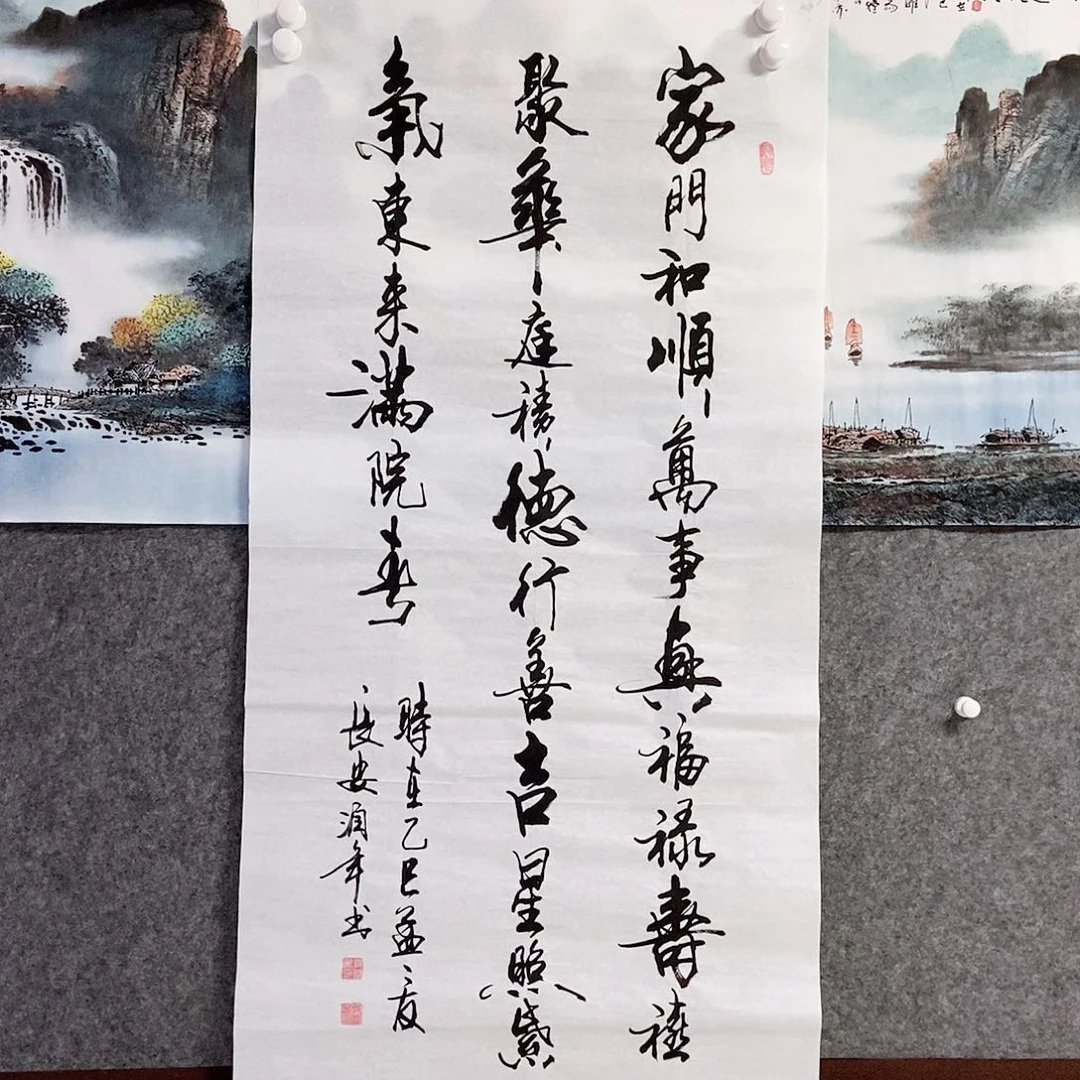 家門和順萬事興福禄壽禧
聚華庭積德行善吉星照紫
氣東来滿院春
時在乙巳孟夏
長安潤年书